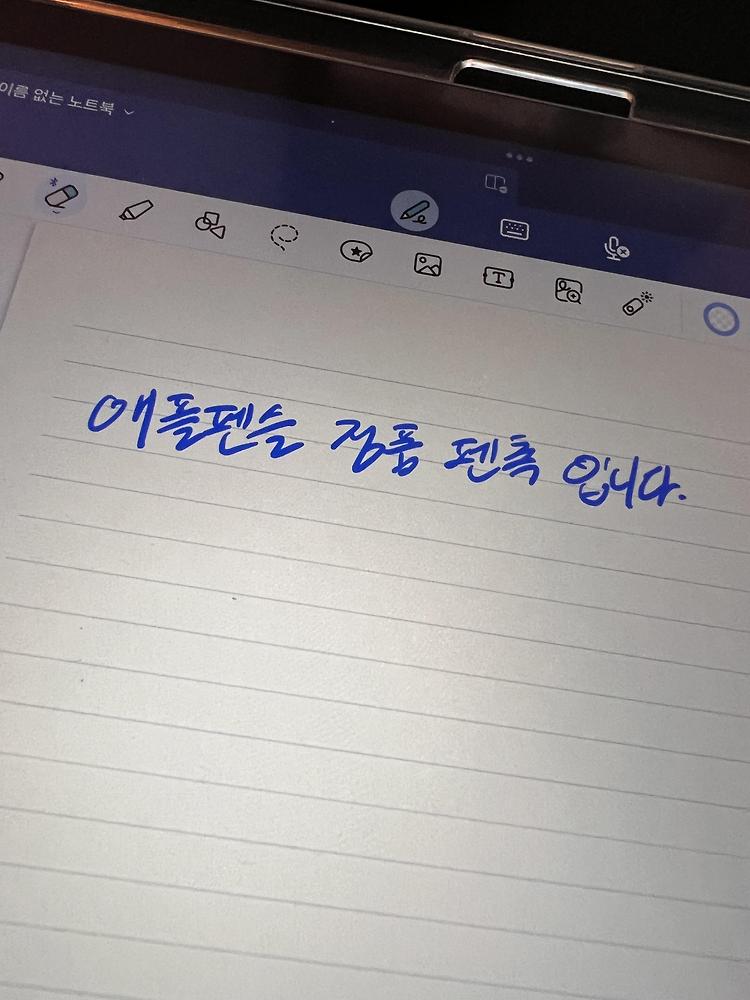 이름 없는 노트북
T
애플펜슬 정품 펜촉 입니다.